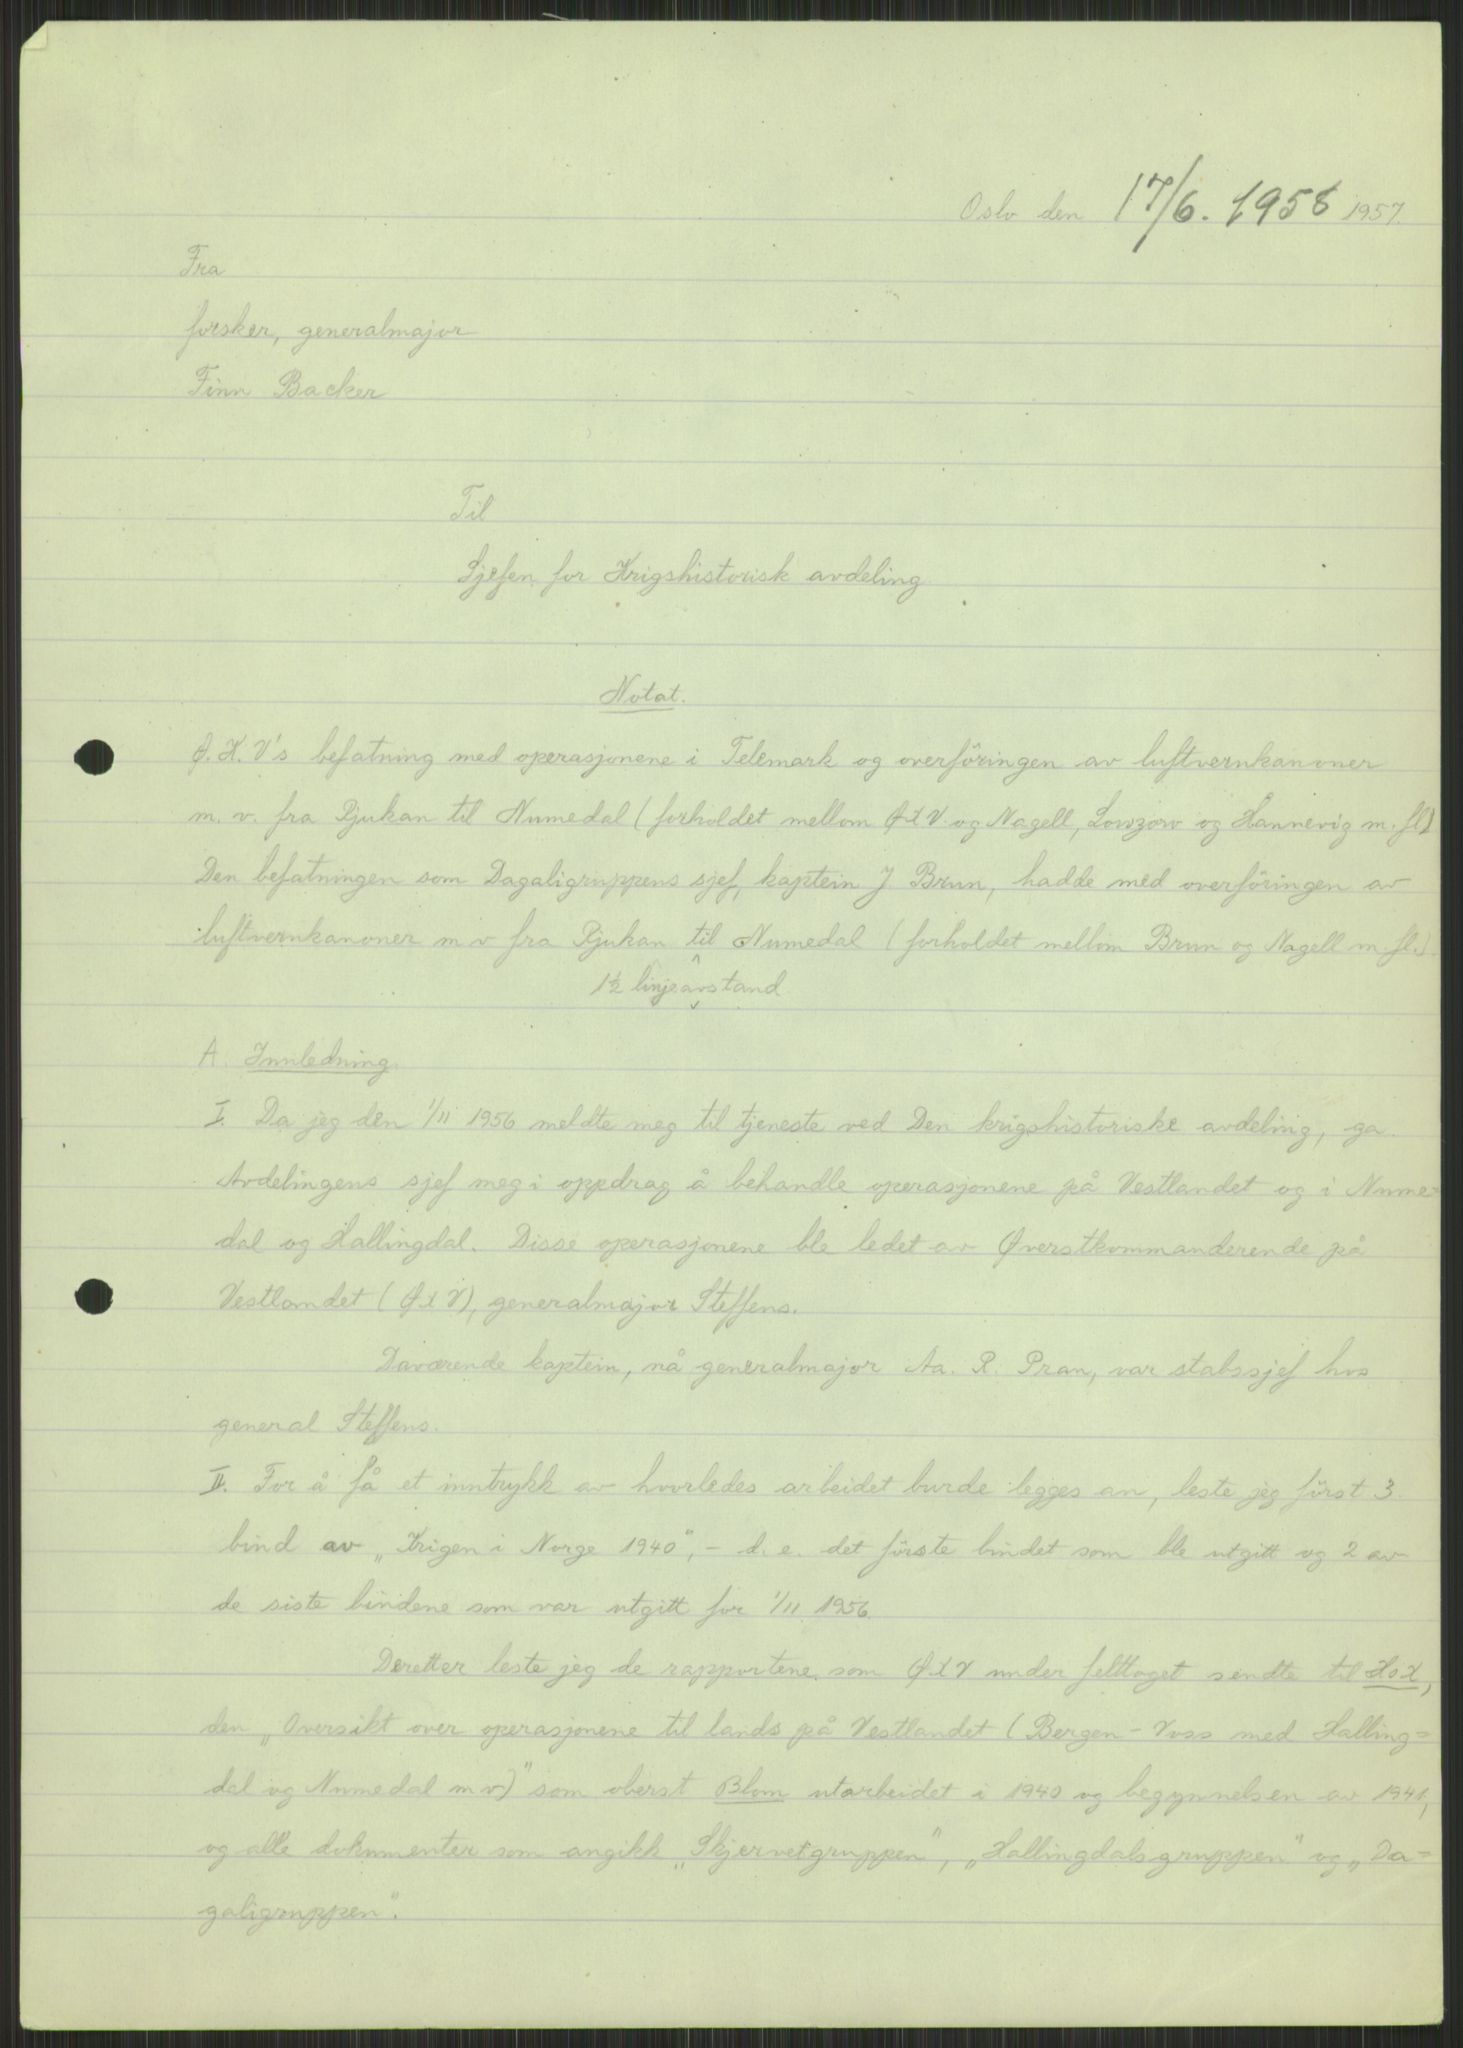 Oslo den 17/6. 1958 1957.
Fra
forsker, generalmajor
Finn Backer
Til
Sjefen for Krigshistorisk avdeling
Notat.
Ø.K.V's befatning med operasjonene i Telemark og overföringen av luftvernkanoner
m.v. fra Rjukan til Numedal (forholdet mellom ØKV og Nagell, Lowzow og Hannevig m.fl)
Den befatningen som Dagaligruppens sjef, kaptein J Brun, hadde med overföringen av
luftvernkanoner m v fra Rjukan til Numedal (forholdet mellom Brun og Nagell m.fl.)
1½ linjeavstand
A. Innledning.
I. Da jeg den 1/11 1956 meldte meg til tjeneste ved Den krigshistoriske avdeling, ga
Avdelingens sjef meg i oppdrag å behandle operasjonene på Vestlandet og i Nume=
dal og Hallingdal. Disse operasjonene ble ledet av Øverstkommanderende på
Vestlandet (ØKV), generalmajor Steffens.
Daværende kaptein, nå generalmajor Aa. R. Pran, var stabssjef hos
general Steffens.
II. For å få et inntrykk av hvorledes arbeidet burde legges an, leste jeg först 3
bind av „Krigen i Norge 1940", - d.e. det förste bindet som ble utgitt og 2 av
de siste bindene som var utgitt for 1/11 1956.
Deretter leste jeg de rapportene som ØKV under felttoget sendte til HoK,
den „Oversikt over operasjonene til lands på Vestlandet (Bergen - Voss med Halling=
dal og Numedal m v)" som oberst Blom utarbeidet i 1940 og begynnelsen av 1941,
og alle dokumenter som angikk „Skjervetgruppen", „Hallingdalsgruppen" og „Da=
galigruppen".